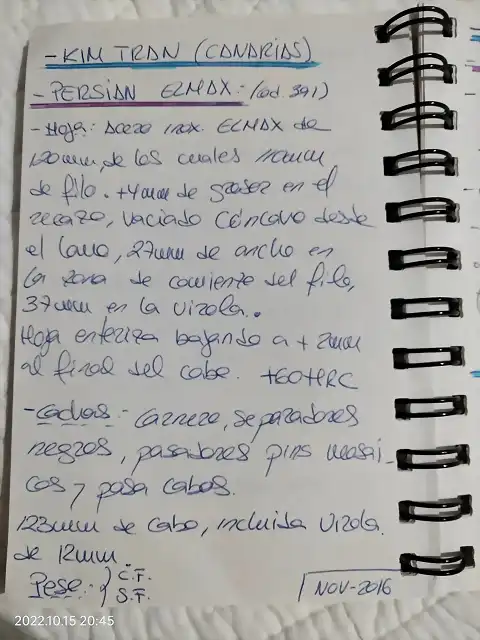 - KIM TRAN (CANARIAS)
- PERSIAN ELMAX.- (cod. 391)
- Hoja: Acero inox. ELMAX de
120mm, de los cuales 110mm
de filo. +4mm de grosor en el
recazo, vaciado cóncavo desde
el lomo, 27mm de ancho en
la zona de comienzo del filo,
37mm en la virola.
Hoja enteriza bajando a + 2mm
al final del cabo. +60HRC
- Cachas.- Carnero, separadores
negros, pasadores pins mosai-
cos y pasa cabos.
123mm de cabo, incluida virola
de 12mm.
Peso.- } C.F.
S.F.
NOV-2016
2022.10.15 20:45